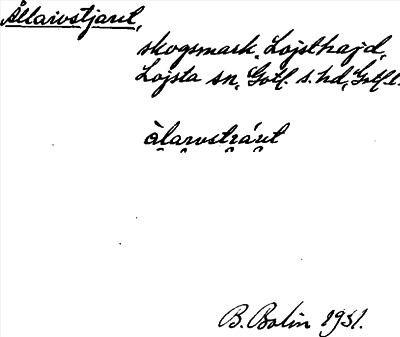 Ållarvstjaut,
skogsmark, Lojsthajd,
Lojsta sn, Gotl. s. hd, Gotl. l.
àlarvstráut
B. Bolin 1931.